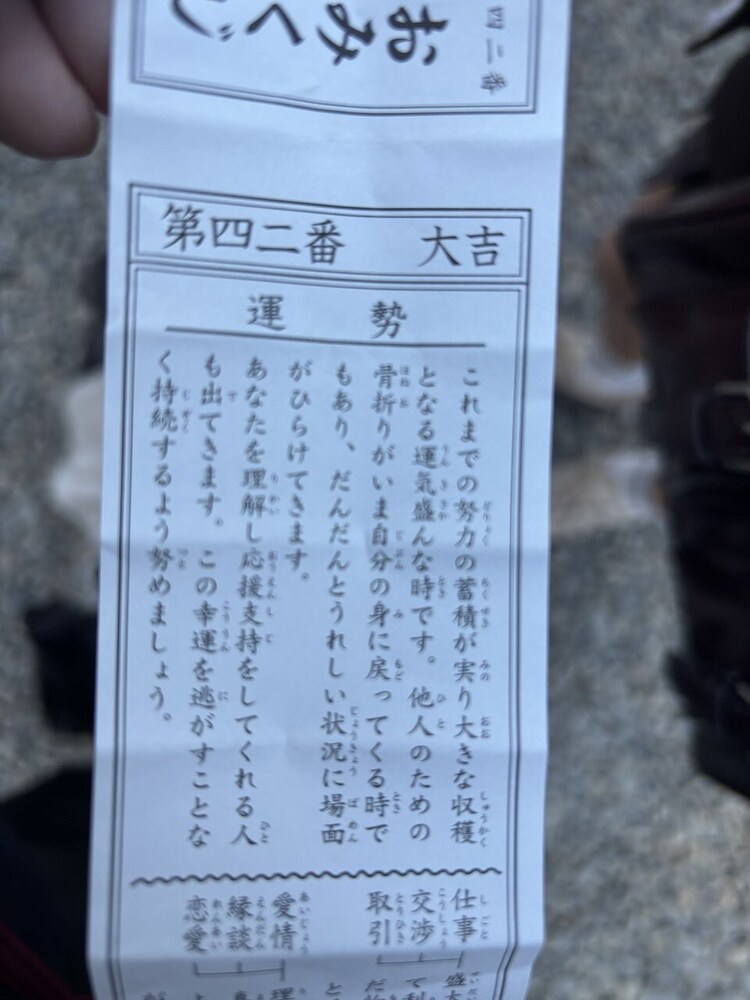 四二番
おみくじ
第四二番 大吉
運勢
これまでの努力の蓄積が実り大きな収穫
となる運気盛んな時です。他人のための
骨折りがいま自分の身に戻ってくる時で
もあり、だんだんとうれしい状況に場面
がひらけてきます。
あなたを理解し応援支持をしてくれる人
も出てきます。この幸運を逃がすことな
く持続するよう努めましょう。
仕事
交渉
取引
愛情
縁談
恋愛